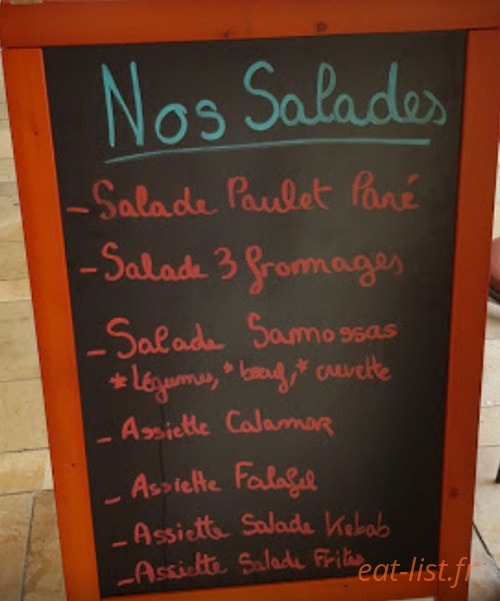 Nos Salades
- Salade Paulet Pané
- Salade 3 fromages
- Salade Samossas
* Légumes, * bœuf, * crevette
- Assiette Calamar
- Assiette Falafel
- Assiette Salade Kebab
- Assiette Salade Frites
eat-list.fr